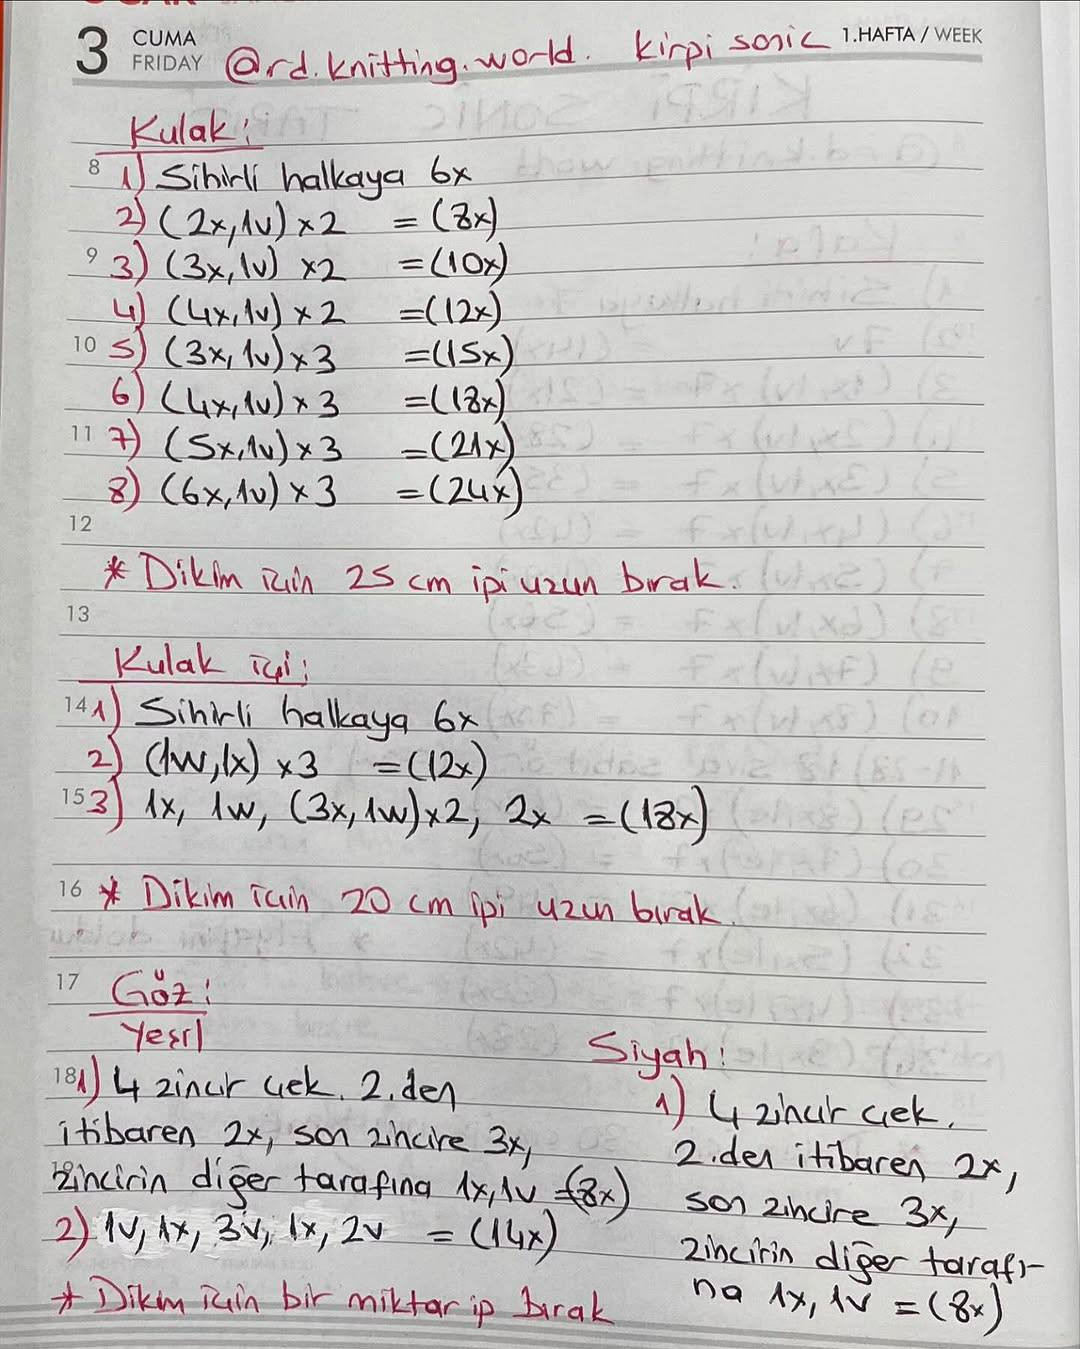 3 CUMA
FRIDAY
@rd.knitting.world. kirpi sonic
1.HAFTA / WEEK
Kulak:
8
1) Sihirli halkaya 6x
2) (2x,1v) x2 = (8x)
9
3) (3x,1v) x2 =(10x)
4) (4x,1v) x 2 =(12x)
10
5) (3x,1v) x3 =(15x)
6) (4x,1v) x 3 =(18x)
11
7) (5x,1v) x 3 =(21x)
8) (6x,1v) x 3 =(24x)
12
* Dikim için 25 cm ipi uzun bırak.
13
Kulak içi:
14
1) Sihirli halkaya 6x
2) (1w,1x) x3 =(12x)
15
3) 1x, 1w, (3x,1w)x2, 2x =(18x)
16
* Dikim için 20 cm ipi uzun bırak.
17
Göz:
Yeşil
18
1) 4 zincir çek. 2.den
itibaren 2x, son zincire 3x,
19
zincirin diğer tarafına 1x,1v =(8x)
2) 1v, 1x, 3v, 1x, 2v = (14x)
* Dikim için bir miktar ip bırak
Siyah:
1) 4 zincir çek.
2.den itibaren 2x,
son zincire 3x,
zincirin diğer tarafı-
na 1x, 1v =(8x)